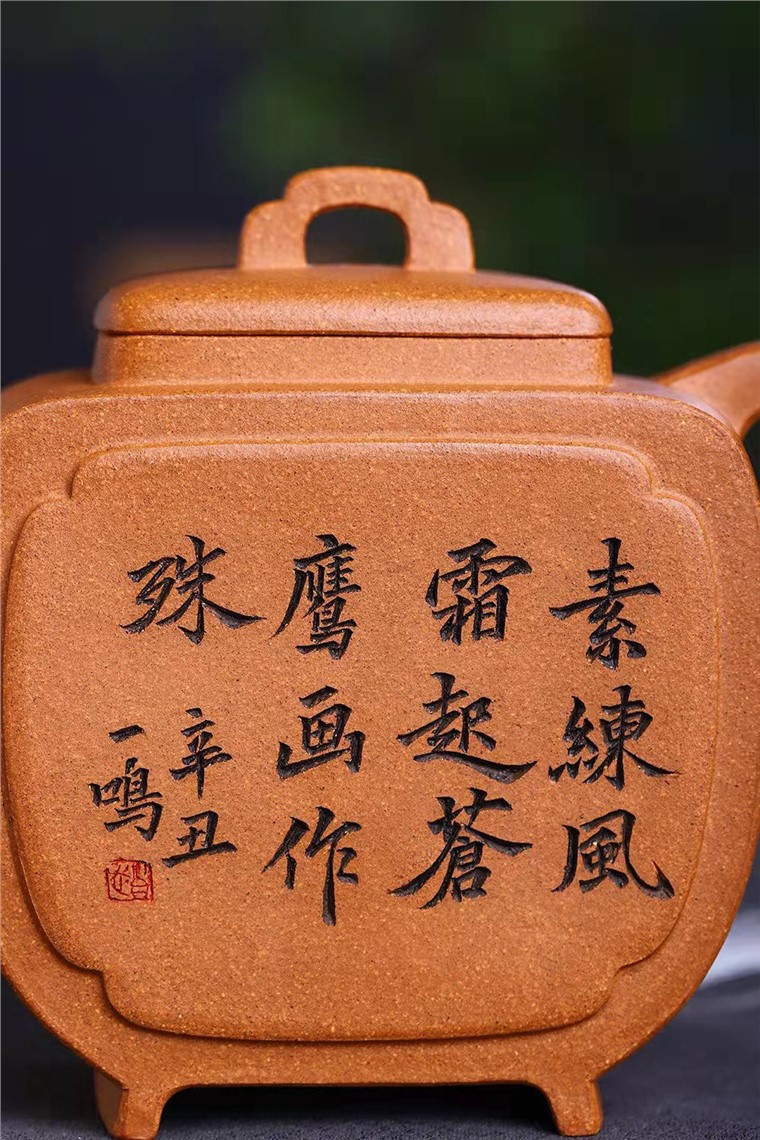 素練風
霜起蒼
鷹画作
殊
辛丑
一鳴